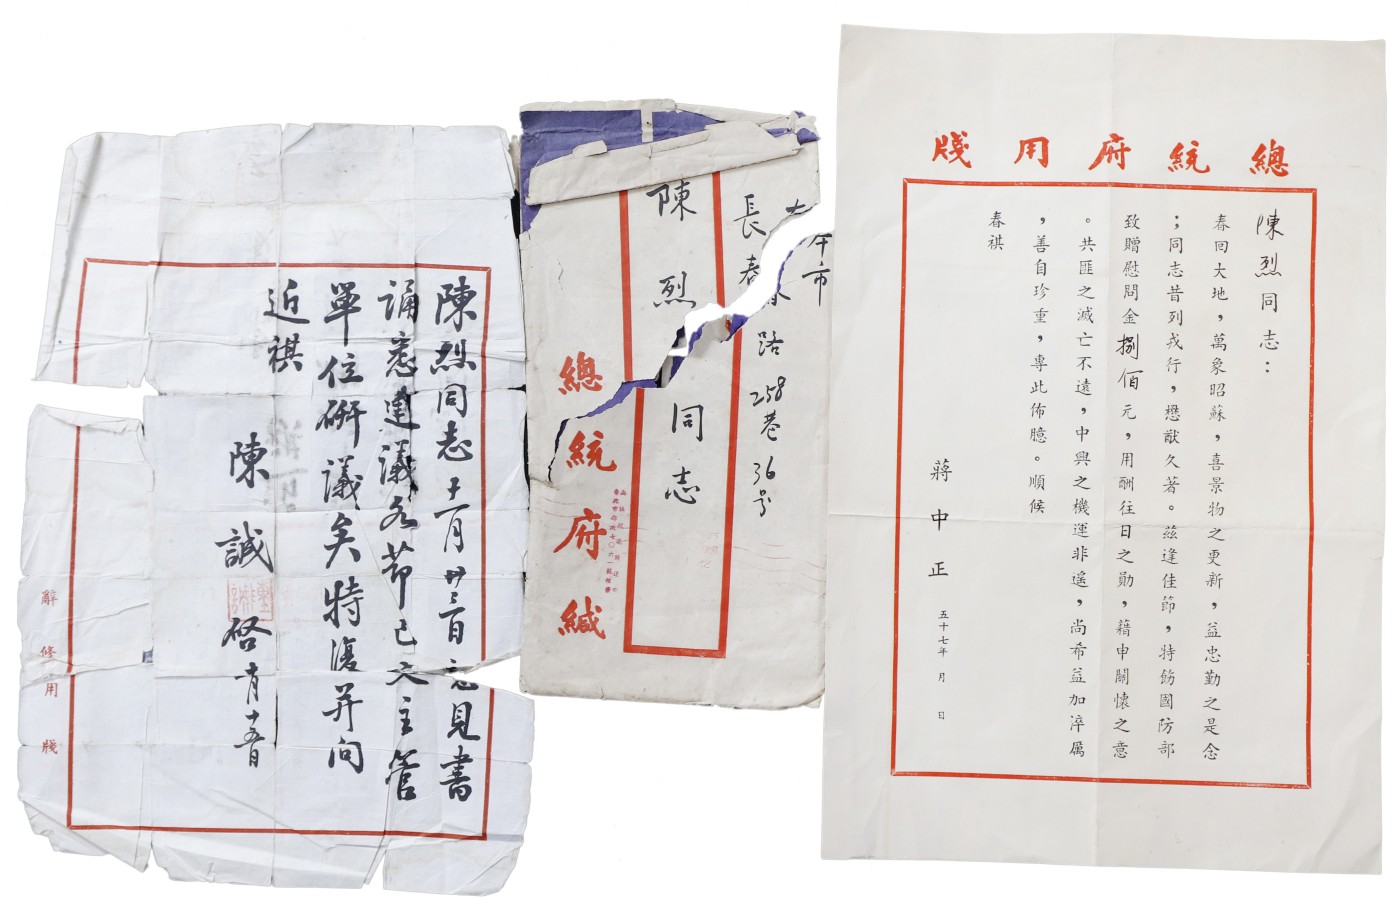 總統府用牋
陳烈同志：
春回大地，萬象昭蘇，喜景物之更新，益忠勤之是念
；同志昔列戎行，懋猷久著。茲逢佳節，特飭國防部
致贈慰問金捌佰元，用酬往日之勛，藉申關懷之意
。共匪之滅亡不遠，中興之機運非遙，尚希益加淬厲
，善自珍重，專此佈臆。順候
春祺
蔣中正
五十七年 月 日
市
長春路258巷36号
陳烈同志
總統府緘
陳烈同志十一月廿三日意見書
誦悉建議各節已交主管
單位研議矣特復并问
近祺
陳誠啓
辭修用牋